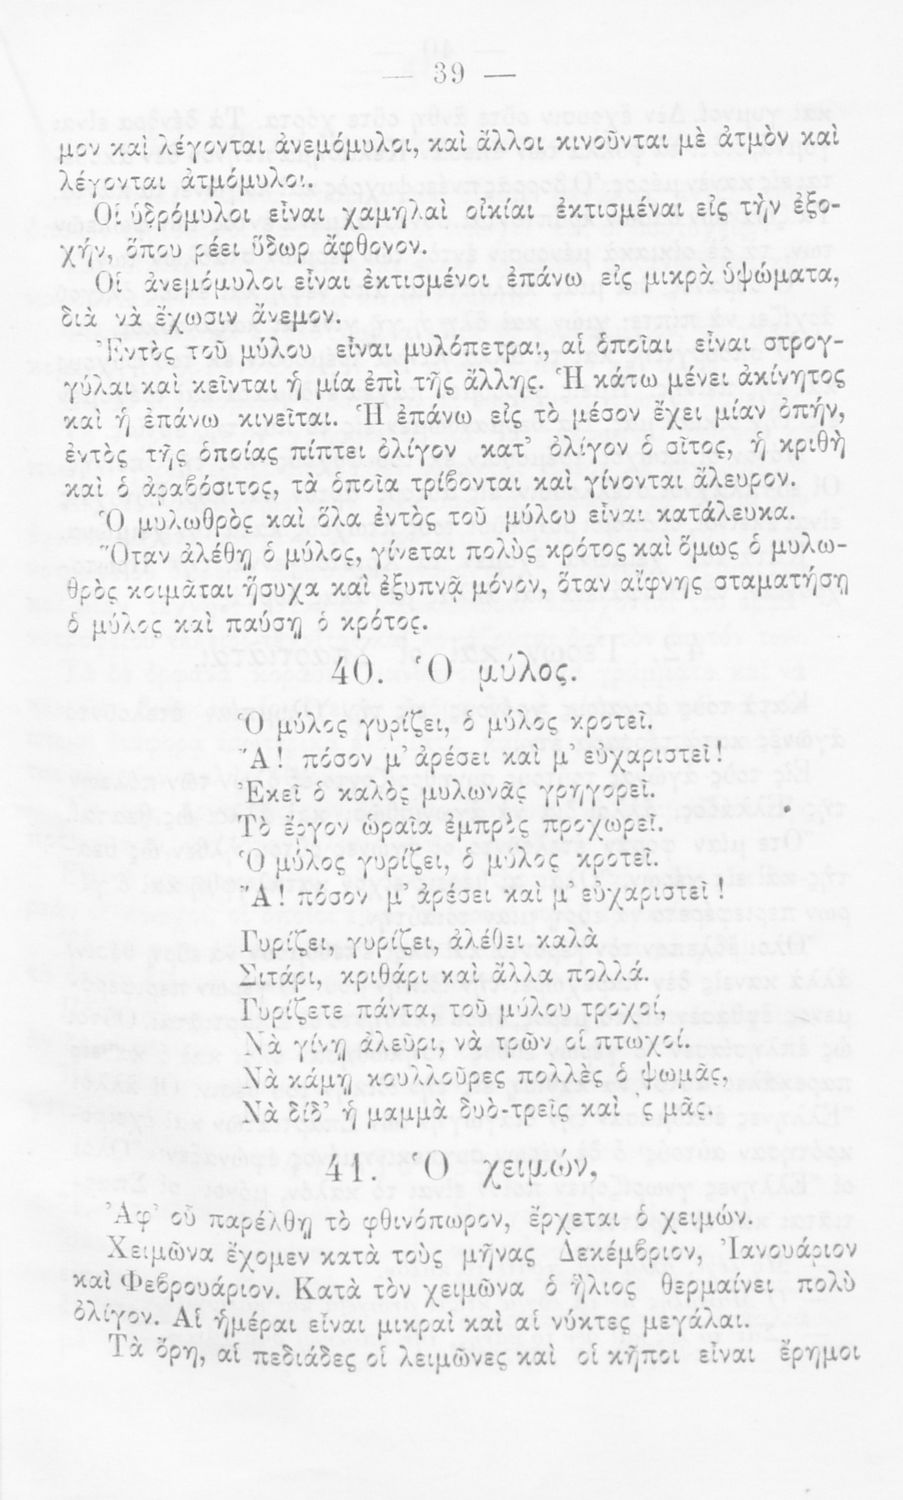 — 39 —
μον καὶ λέγονται ἀνεμόμυλοι, καὶ ἄλλοι κινοῦνται μὲ ἀτμὸν καὶ
λέγονται ἀτμόμυλοι.
Οἱ ὑδρόμυλοι εἶναι χαμηλαὶ οἰκίαι ἐκτισμέναι εἰς τὴν ἐξο-
χήν, ὅπου ρέει ὕδωρ ἄφθονον.
Οἱ ἀνεμόμυλοι εἶναι ἐκτισμένοι ἐπάνω εἰς μικρὰ ὑψώματα,
διὰ νὰ ἔχωσιν ἄνεμον.
Ἐντὸς τοῦ μύλου εἶναι μυλόπετραι, αἱ ὁποῖαι εἶναι στρογ-
γύλαι καὶ κεῖνται ἡ μία ἐπὶ τῆς ἄλλης. Ἡ κάτω μένει ἀκίνητος
καὶ ἡ ἐπάνω κινεῖται. Ἡ ἐπάνω εἰς τὸ μέσον ἔχει μίαν ὀπήν,
ἐντὸς τῆς ὁποίας πίπτει ὀλίγον κατ’ ὀλίγον ὁ σῖτος, ἡ κριθὴ
καὶ ὁ ἀραβόσιτος, τὰ ὁποῖα τρίβονται καὶ γίνονται ἄλευρον.
Ὁ μυλωθρὸς καὶ ὅλα ἐντὸς τοῦ μύλου εἶναι κατάλευκα.
Ὅταν ἀλέθῃ ὁ μύλος, γίνεται πολὺς κρότος καὶ ὅμως ὁ μυλω-
θρὸς κοιμᾶται ἥσυχα καὶ ἐξυπνᾷ μόνον, ὅταν αἴφνης σταματήσῃ
ὁ μύλος καὶ παύσῃ ὁ κρότος.
40. Ὁ μύλος.
Ὁ μύλος γυρίζει, ὁ μύλος κροτεῖ.
Ἄ! πόσον μ’ ἀρέσει καὶ μ’ εὐχαριστεῖ!
Ἐκεῖ ὁ καλὸς μυλωνᾶς γρηγορεῖ.
Τὸ ἔργον ὡραῖα ἐμπρὸς προχωρεῖ.
Ὁ μύλος γυρίζει, ὁ μύλος κροτεῖ.
Ἄ! πόσον μ’ ἀρέσει καὶ μ’ εὐχαριστεῖ!
Γυρίζει, γυρίζει, ἀλέθει καλὰ
Σιτάρι, κριθάρι καὶ ἄλλα πολλά.
Γυρίζετε πάντα, τοῦ μύλου τροχοί,
Νὰ γίνῃ ἀλεῦρι, νὰ τρῶν οἱ πτωχοί.
Νὰ κάμῃ κουλλοῦρες πολλὲς ὁ ψωμᾶς,
Νὰ δίδ’ ἡ μαμμὰ δυὸ-τρεῖς καὶ ’ς μᾶς.
41. Ὁ χειμών,
Ἀφ’ οὗ παρέλθῃ τὸ φθινόπωρον, ἔρχεται ὁ χειμών.
Χειμῶνα ἔχομεν κατὰ τοὺς μῆνας Δεκέμβριον, Ἰανουάριον
καὶ Φεβρουάριον. Κατὰ τὸν χειμῶνα ὁ ἥλιος θερμαίνει πολὺ
ὀλίγον. Αἱ ἡμέραι εἶναι μικραὶ καὶ αἱ νύκτες μεγάλαι.
Τὰ ὄρη, αἱ πεδιάδες οἱ λειμῶνες καὶ οἱ κῆποι εἶναι ἔρημοι